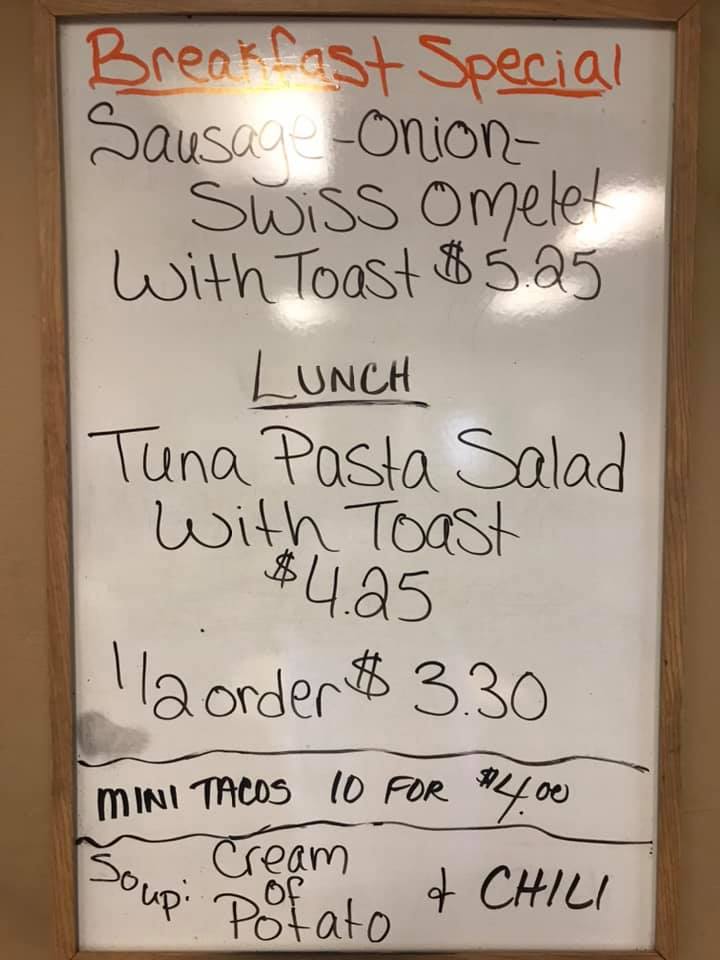 Breakfast Special
Sausage-Onion-
Swiss Omelet
With Toast $5.25
LUNCH
Tuna Pasta Salad
With Toast
$4.25
1/2 order $3.30
MINI TACOS 10 FOR $4.00
Soup: Cream of Potato & CHILI